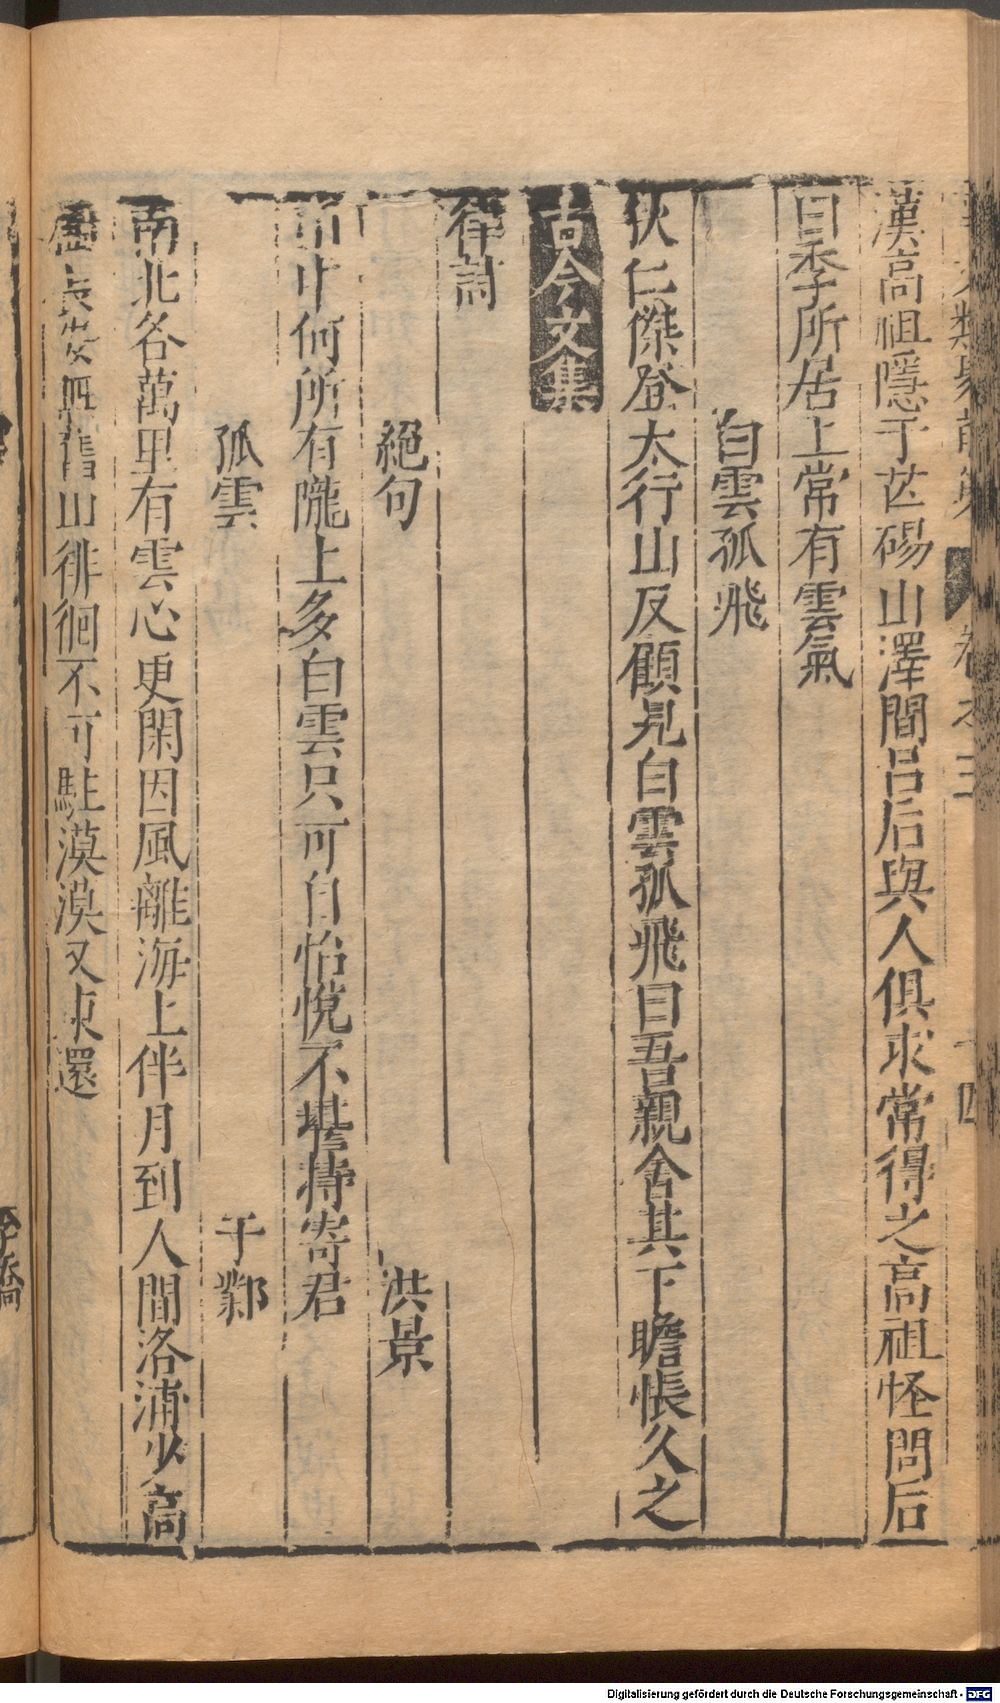 類聚前集 卷之三 十四
漢高祖隱于芒碭山澤間呂后與人俱求常得之高祖怪問后
曰季所居上常有雲氣
白雲孤飛
狄仁傑登太行山反顧見白雲孤飛曰吾親舍其下瞻悵久之
古今文集
律詩
絕句 洪景
山中何所有隴上多白雲只可自怡悅不堪持寄君
孤雲 于鄴
南北各萬里有雲心更閑因風離海上伴月到人間洛浦少高
樹長安無舊山徘徊不可駐漠漠又東還
李嶠
Digitalisierung gefördert durch die Deutsche Forschungsgemeinschaft - DFG